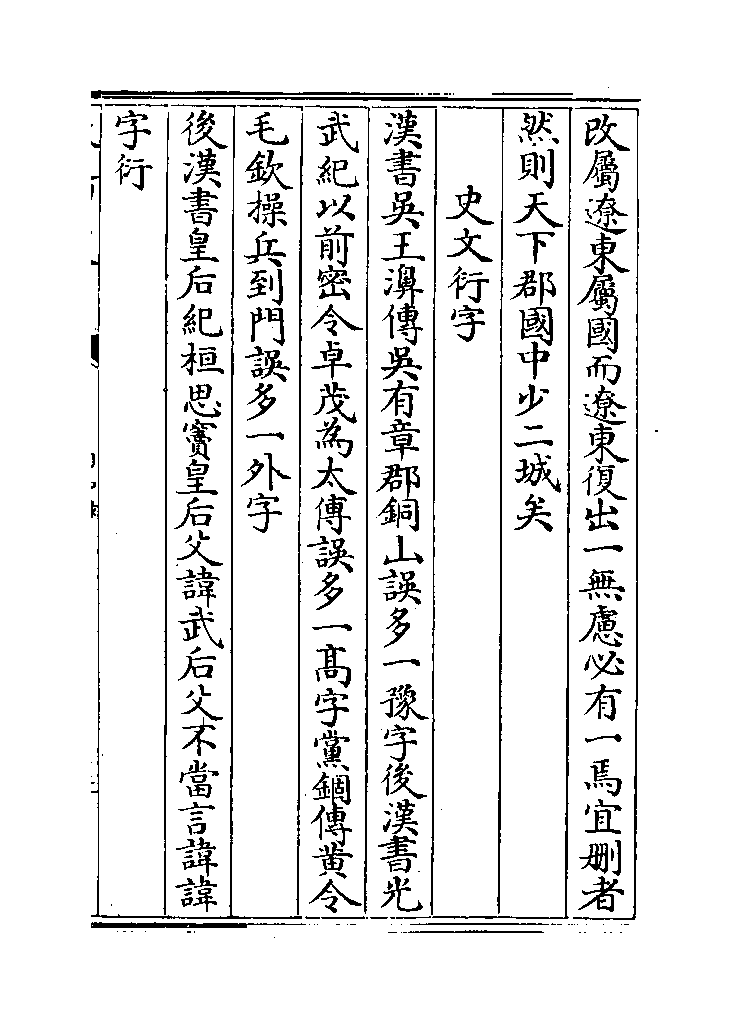 改屬遼東屬國而遼東復出一無慮必有一焉宜刪者
然則天下郡國中少二城矣
史文衍字
漢書吳王濞傳吳有章郡銅山誤多一豫字後漢書光
武紀以前密令卓茂為太傅誤多一高字黨錮傳黄令
毛欽操兵到門誤多一外字
後漢書皇后紀桓思竇皇后父諱武后父不當言諱諱
字衍